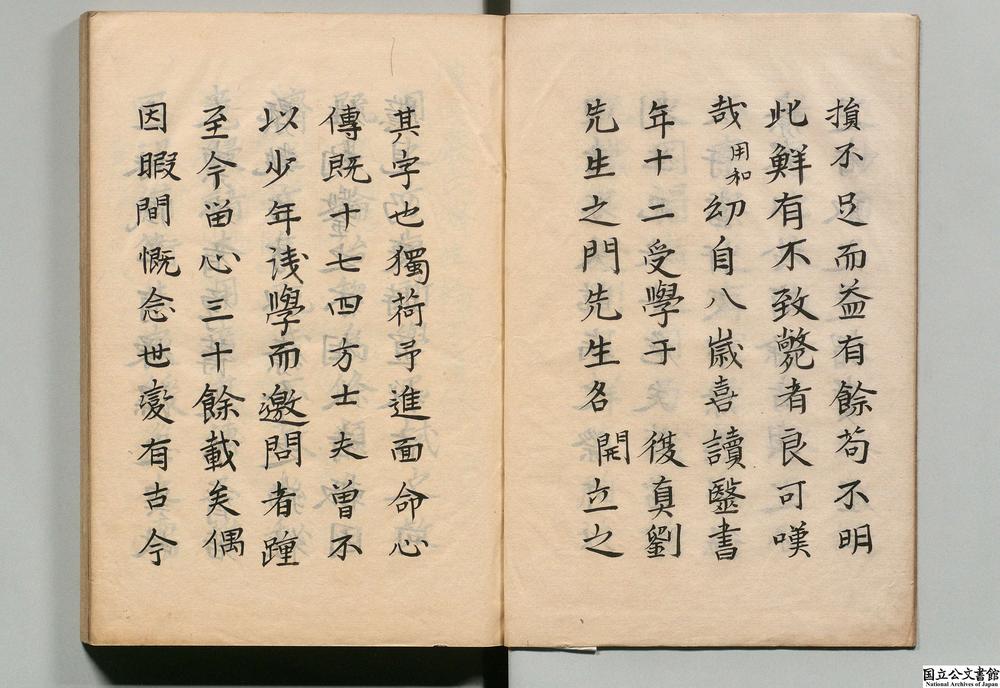 損不足而益有餘苟不明
此鮮有不致斃者良可嘆
哉用和幼自八歲喜讀毉書
年十二受學于復真劉
先生之門先生名開立之
其字也獨荷予進面命心
傳既十七四方士夫曾不
以少年淺學而邀問者踵
至今留心三十餘載矣偶
因暇間慨念世變有古今
国立公文書館
National Archives of Japan